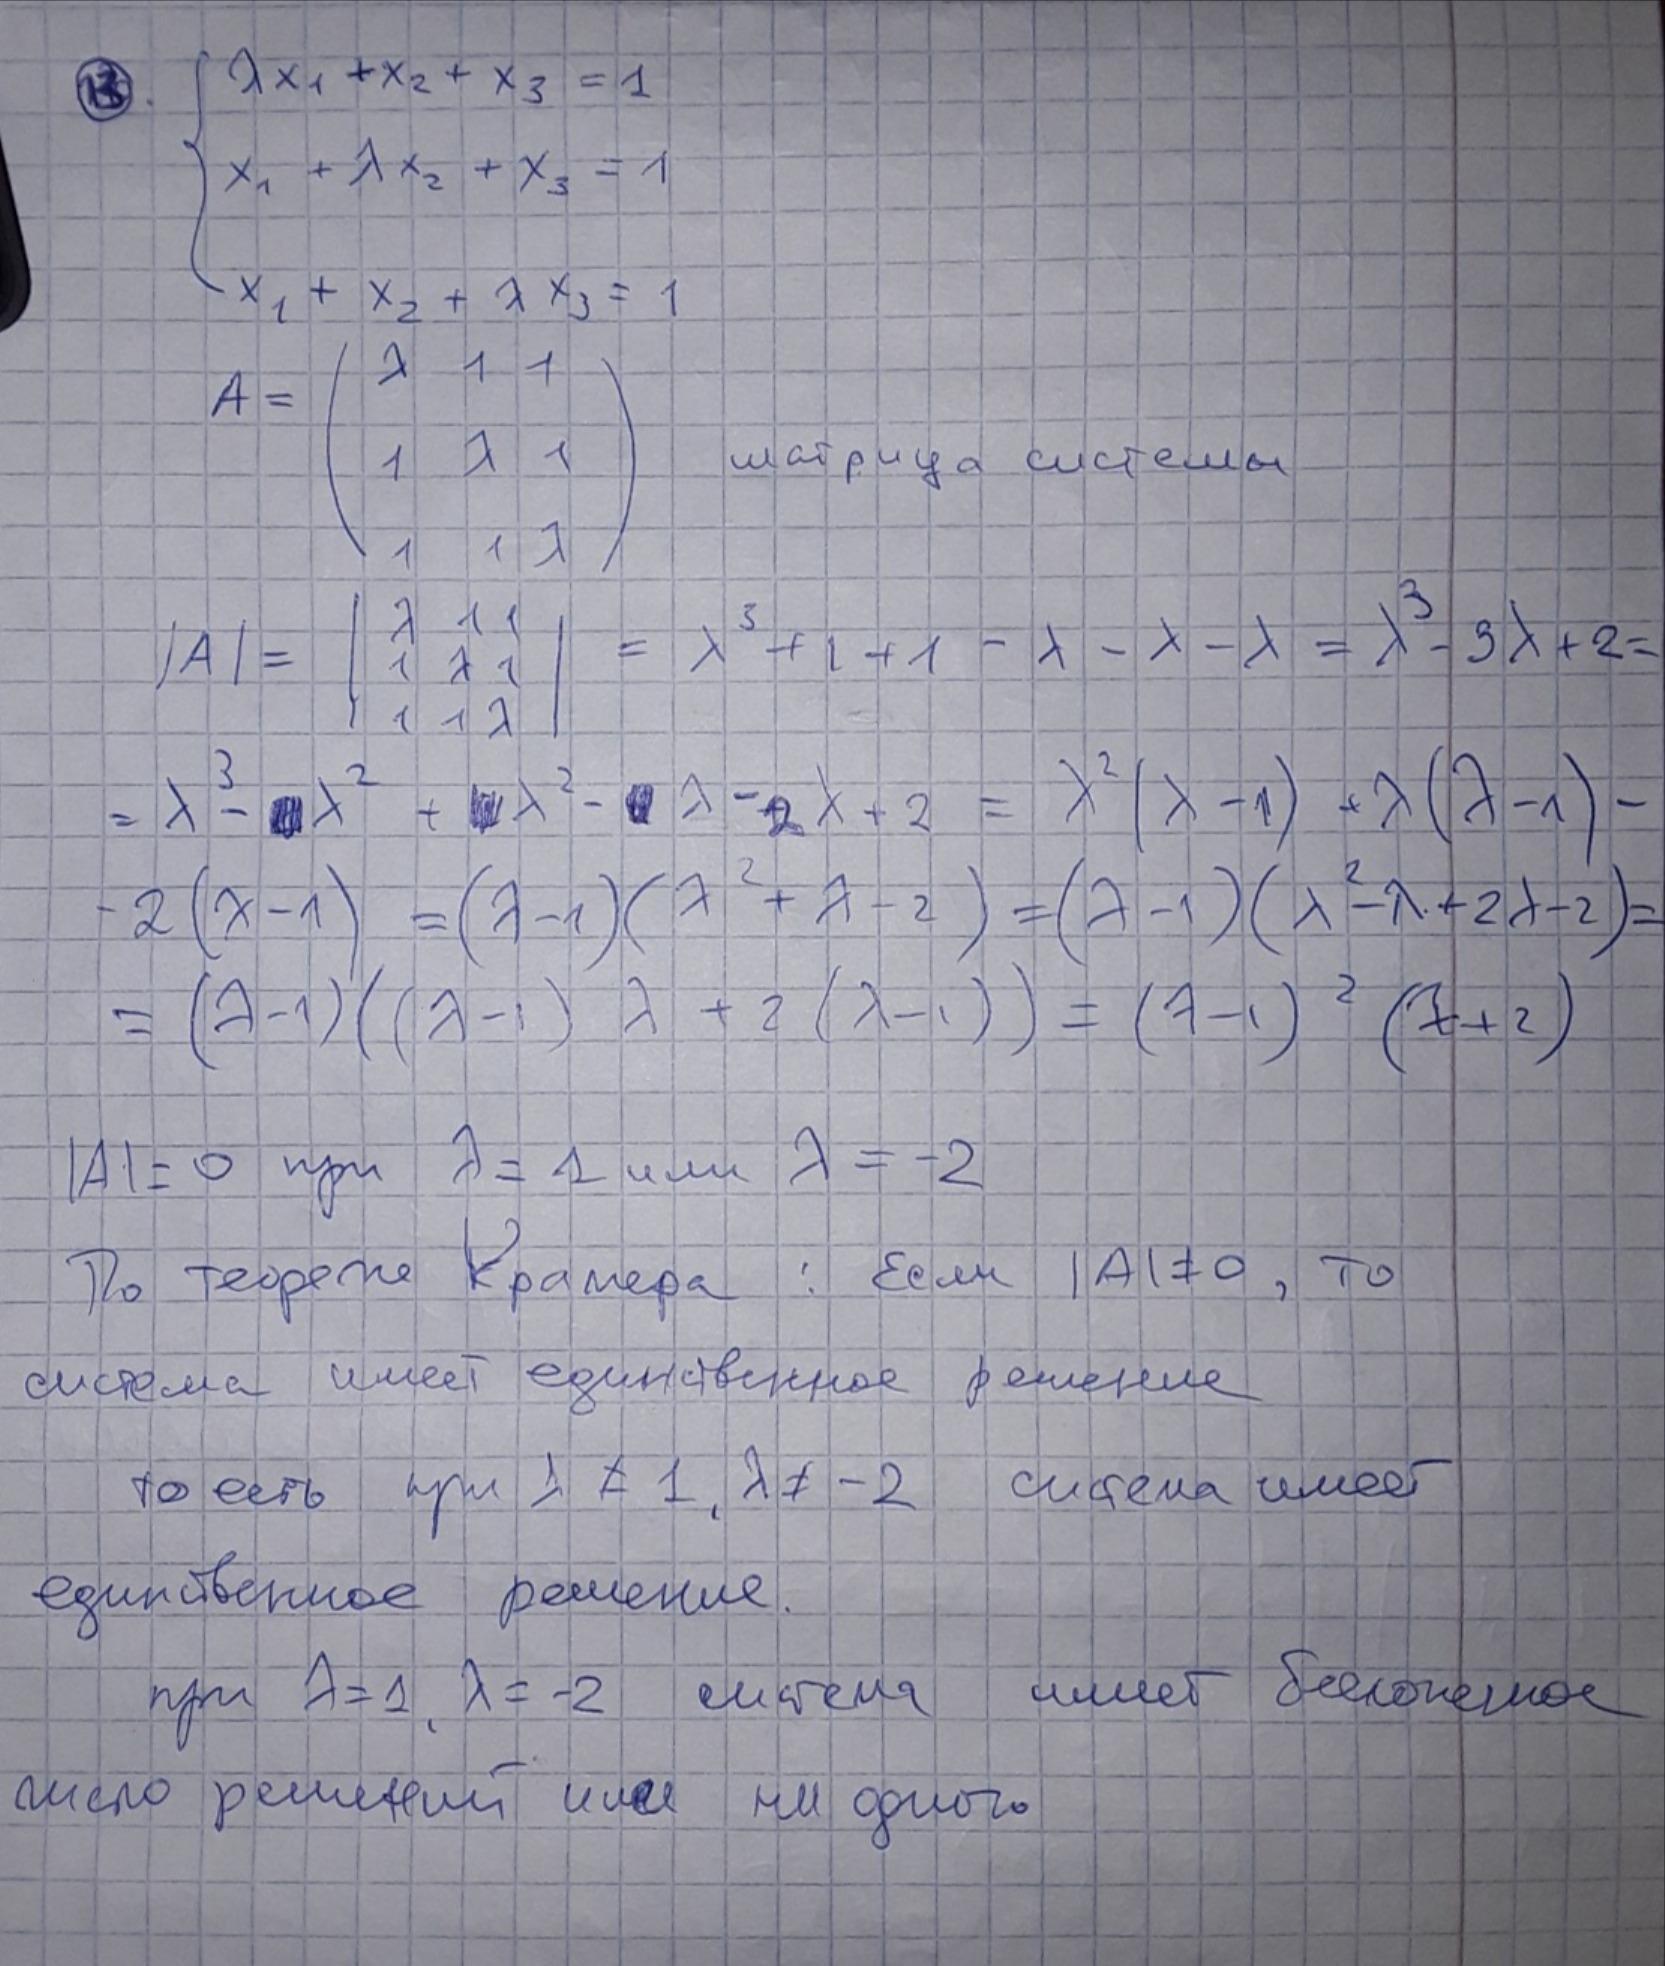 13. λx₁ + x₂ + x₃ = 1
x₁ + λx₂ + x₃ = 1
x₁ + x₂ + λx₃ = 1
A = ( λ 1 1
1 λ 1 матрица системы
1 1 λ )
|A| = | λ 1 1 | 1 λ 1 | 1 1 λ | = λ³ + 1 + 1 - λ - λ - λ = λ³ - 3λ + 2 =
= λ³ - λ² + λ² - λ - 2λ + 2 = λ²(λ - 1) + λ(λ - 1) -
- 2(λ - 1) = (λ - 1)(λ² + λ - 2) = (λ - 1)(λ² - λ + 2λ - 2) =
= (λ - 1)((λ - 1)λ + 2(λ - 1)) = (λ - 1)²(λ + 2)
|A| = 0 при λ = 1 или λ = -2
По теореме Крамера : Если |A| ≠ 0, то
система имеет единственное решение
то есть при λ ≠ 1, λ ≠ -2 система имеет
единственное решение.
при λ = 1, λ = -2 система имеет бесконечное
число решений или ни одного